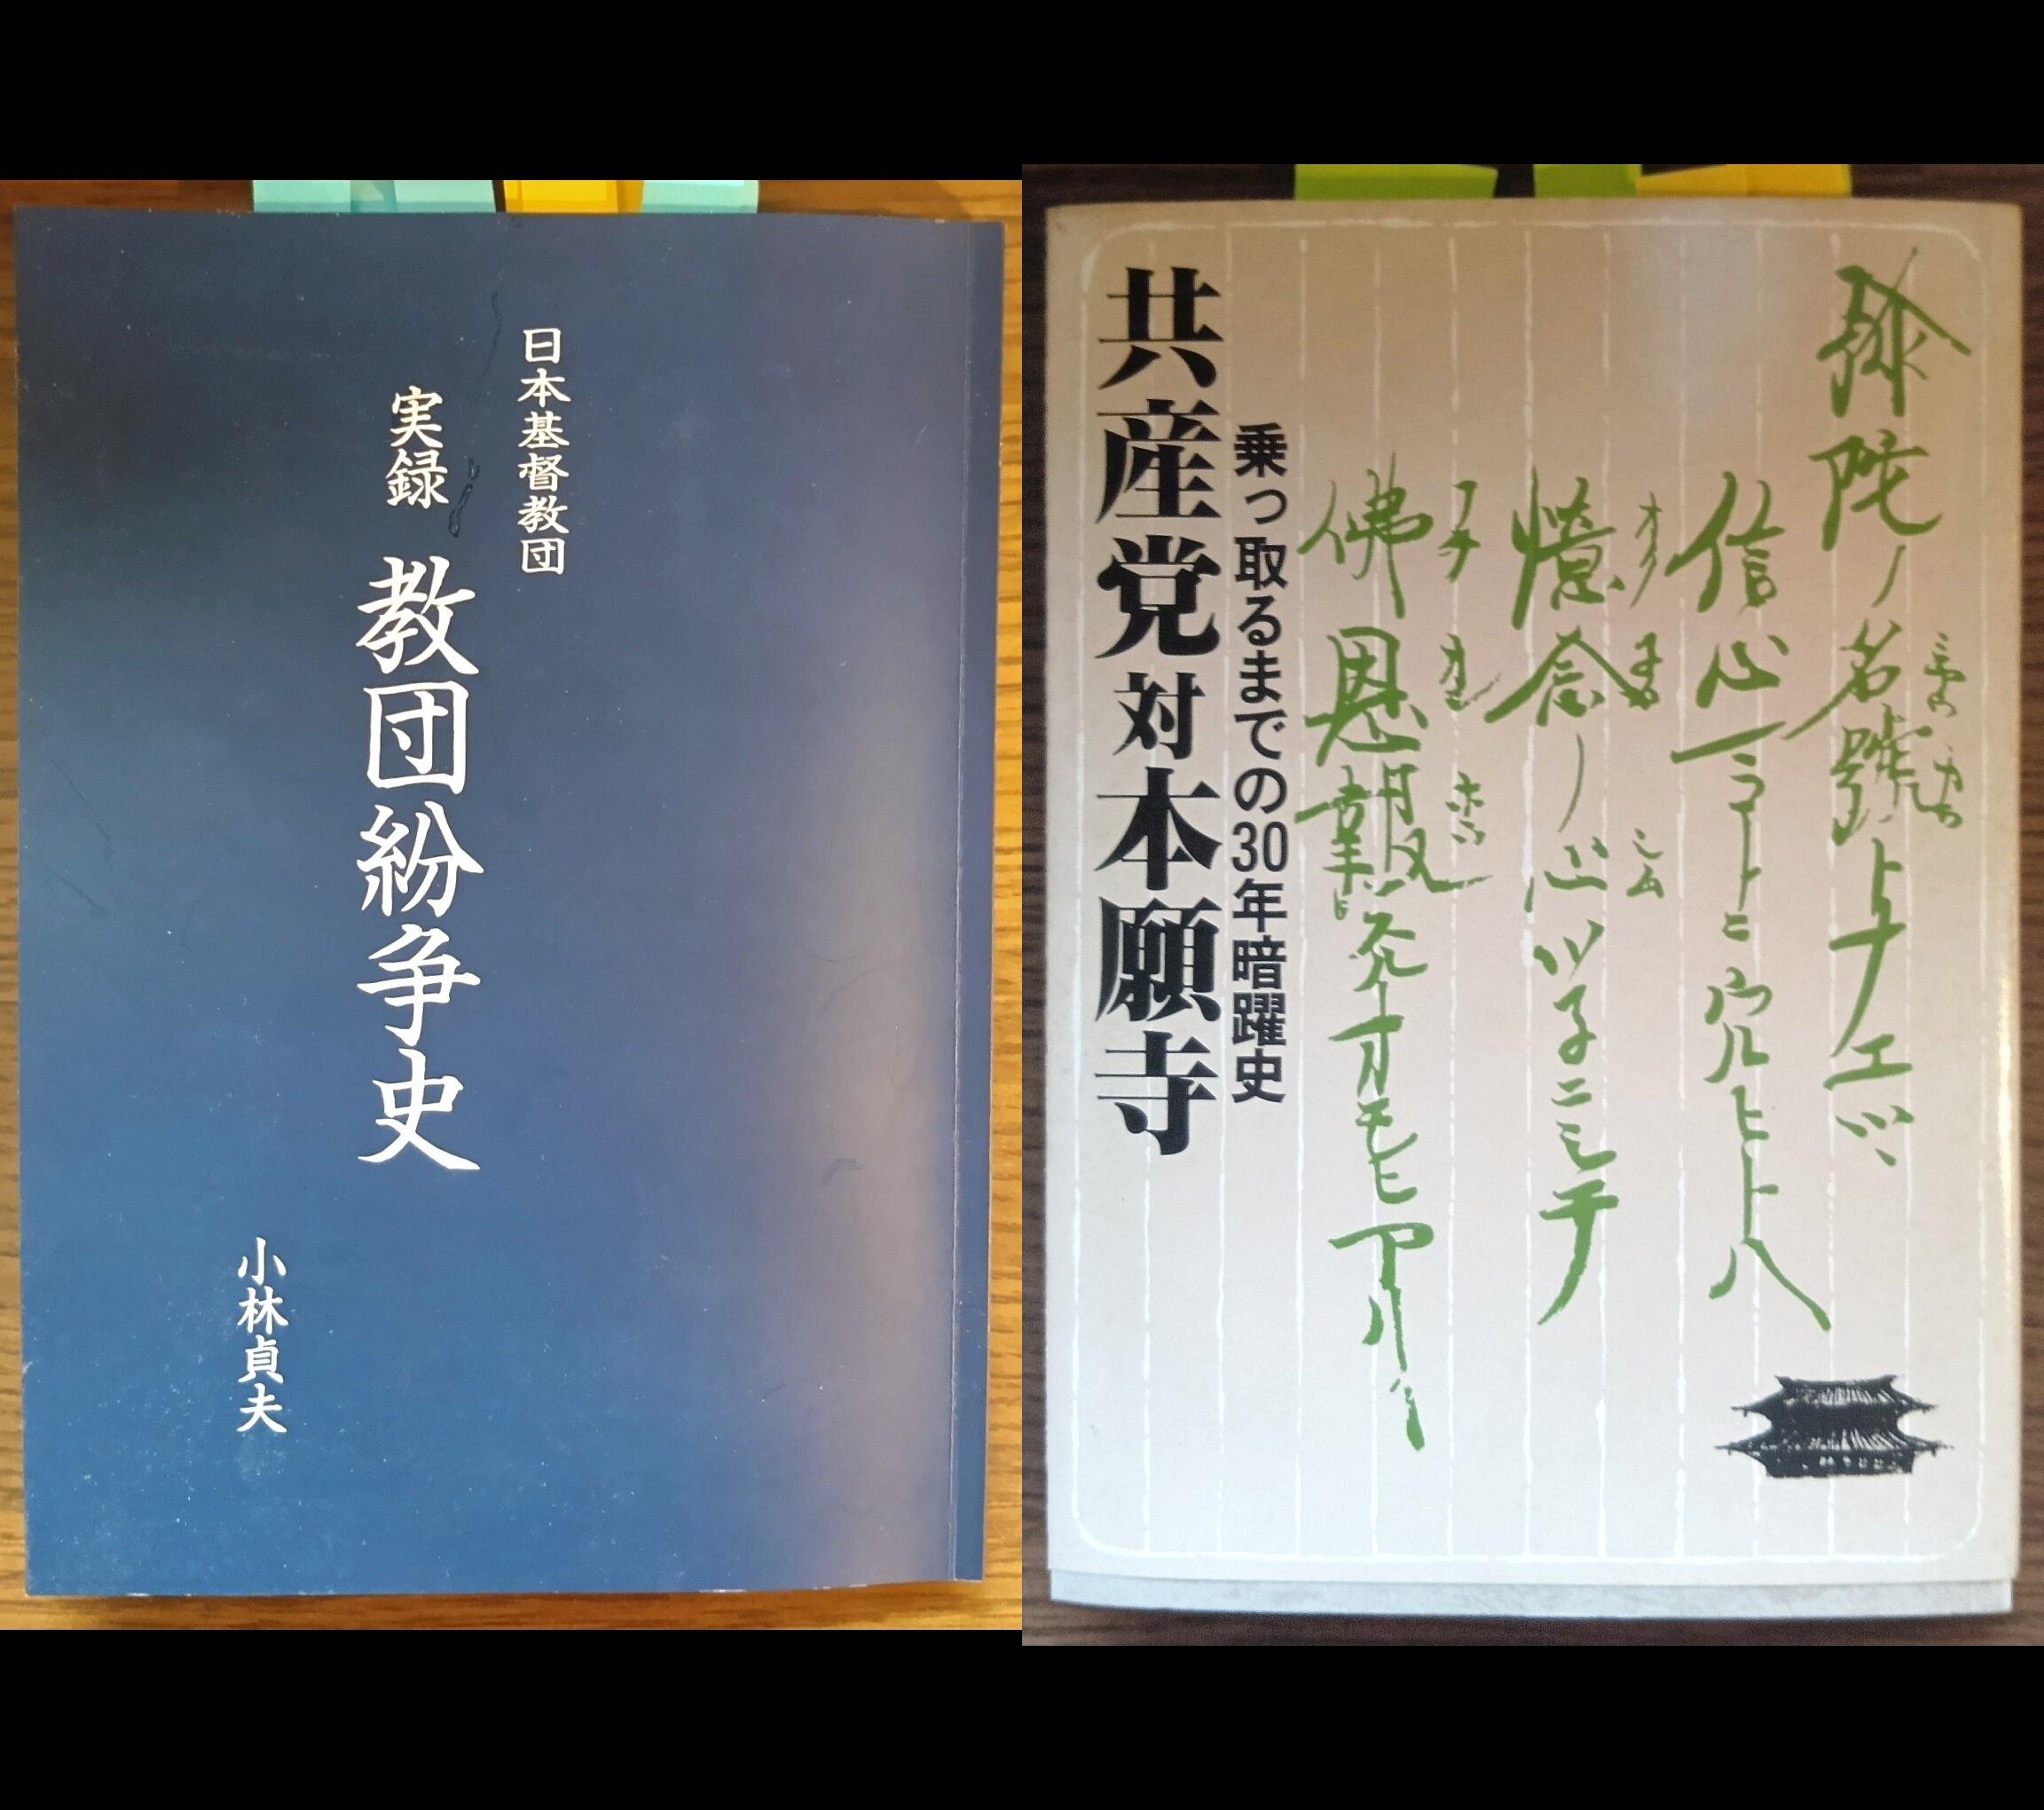 日本基督教団
実録 教団紛争史
小林貞夫
彌陀ノ名號トナエツヽ
信心マコトニウルヒトハ
憶念ノ心ツネニシテ
佛恩報スルオモヒアリ
乗っ取るまでの30年暗躍史
共産党対本願寺